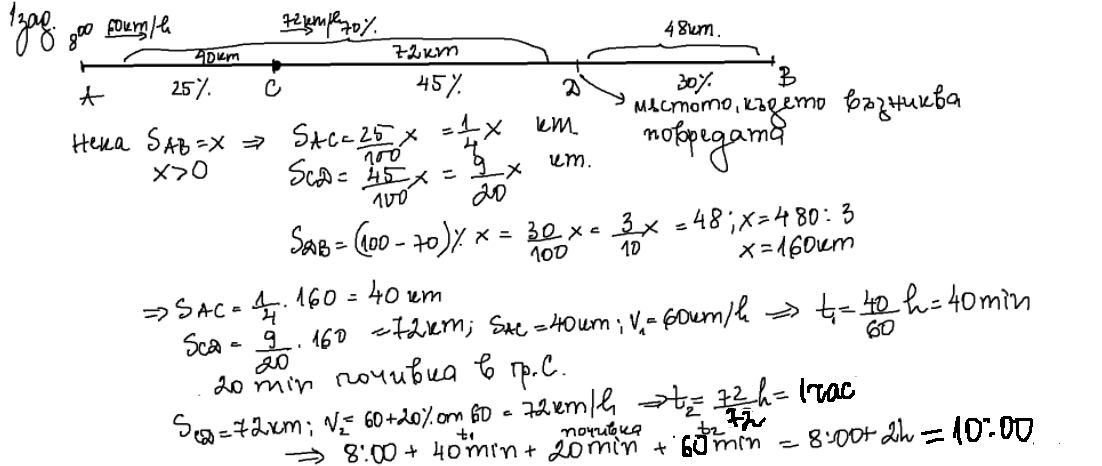 1зад.
8⁰⁰ 60km/h 72km/h 70% 48km.
40km 72km
A 25% C 45% D 30% B
мястото, където възниква
повредата
Нека SAB = x ⇒ SAC = 25/100 x = 1/4 x km
x>0 SCD = 45/100 x = 9/20 x km.
SDB = (100-70)% x = 30/100 x = 3/10 x = 48; x = 480:3
x = 160km
⇒ SAC = 1/4 . 160 = 40 km
SCD = 9/20 . 160 = 72km; SAC = 40km; V₁ = 60km/h ⇒ t₁ = 40/60 h = 40min
20 min почивка в гр. C.
SCD = 72km; V₂ = 60+20% от 60 = 72km/h ⇒ t₂ = 72/72 h = 1час
t₁ почивка t₂
⇒ 8:00 + 40min + 20min + 60min = 8:00+2h = 10:00